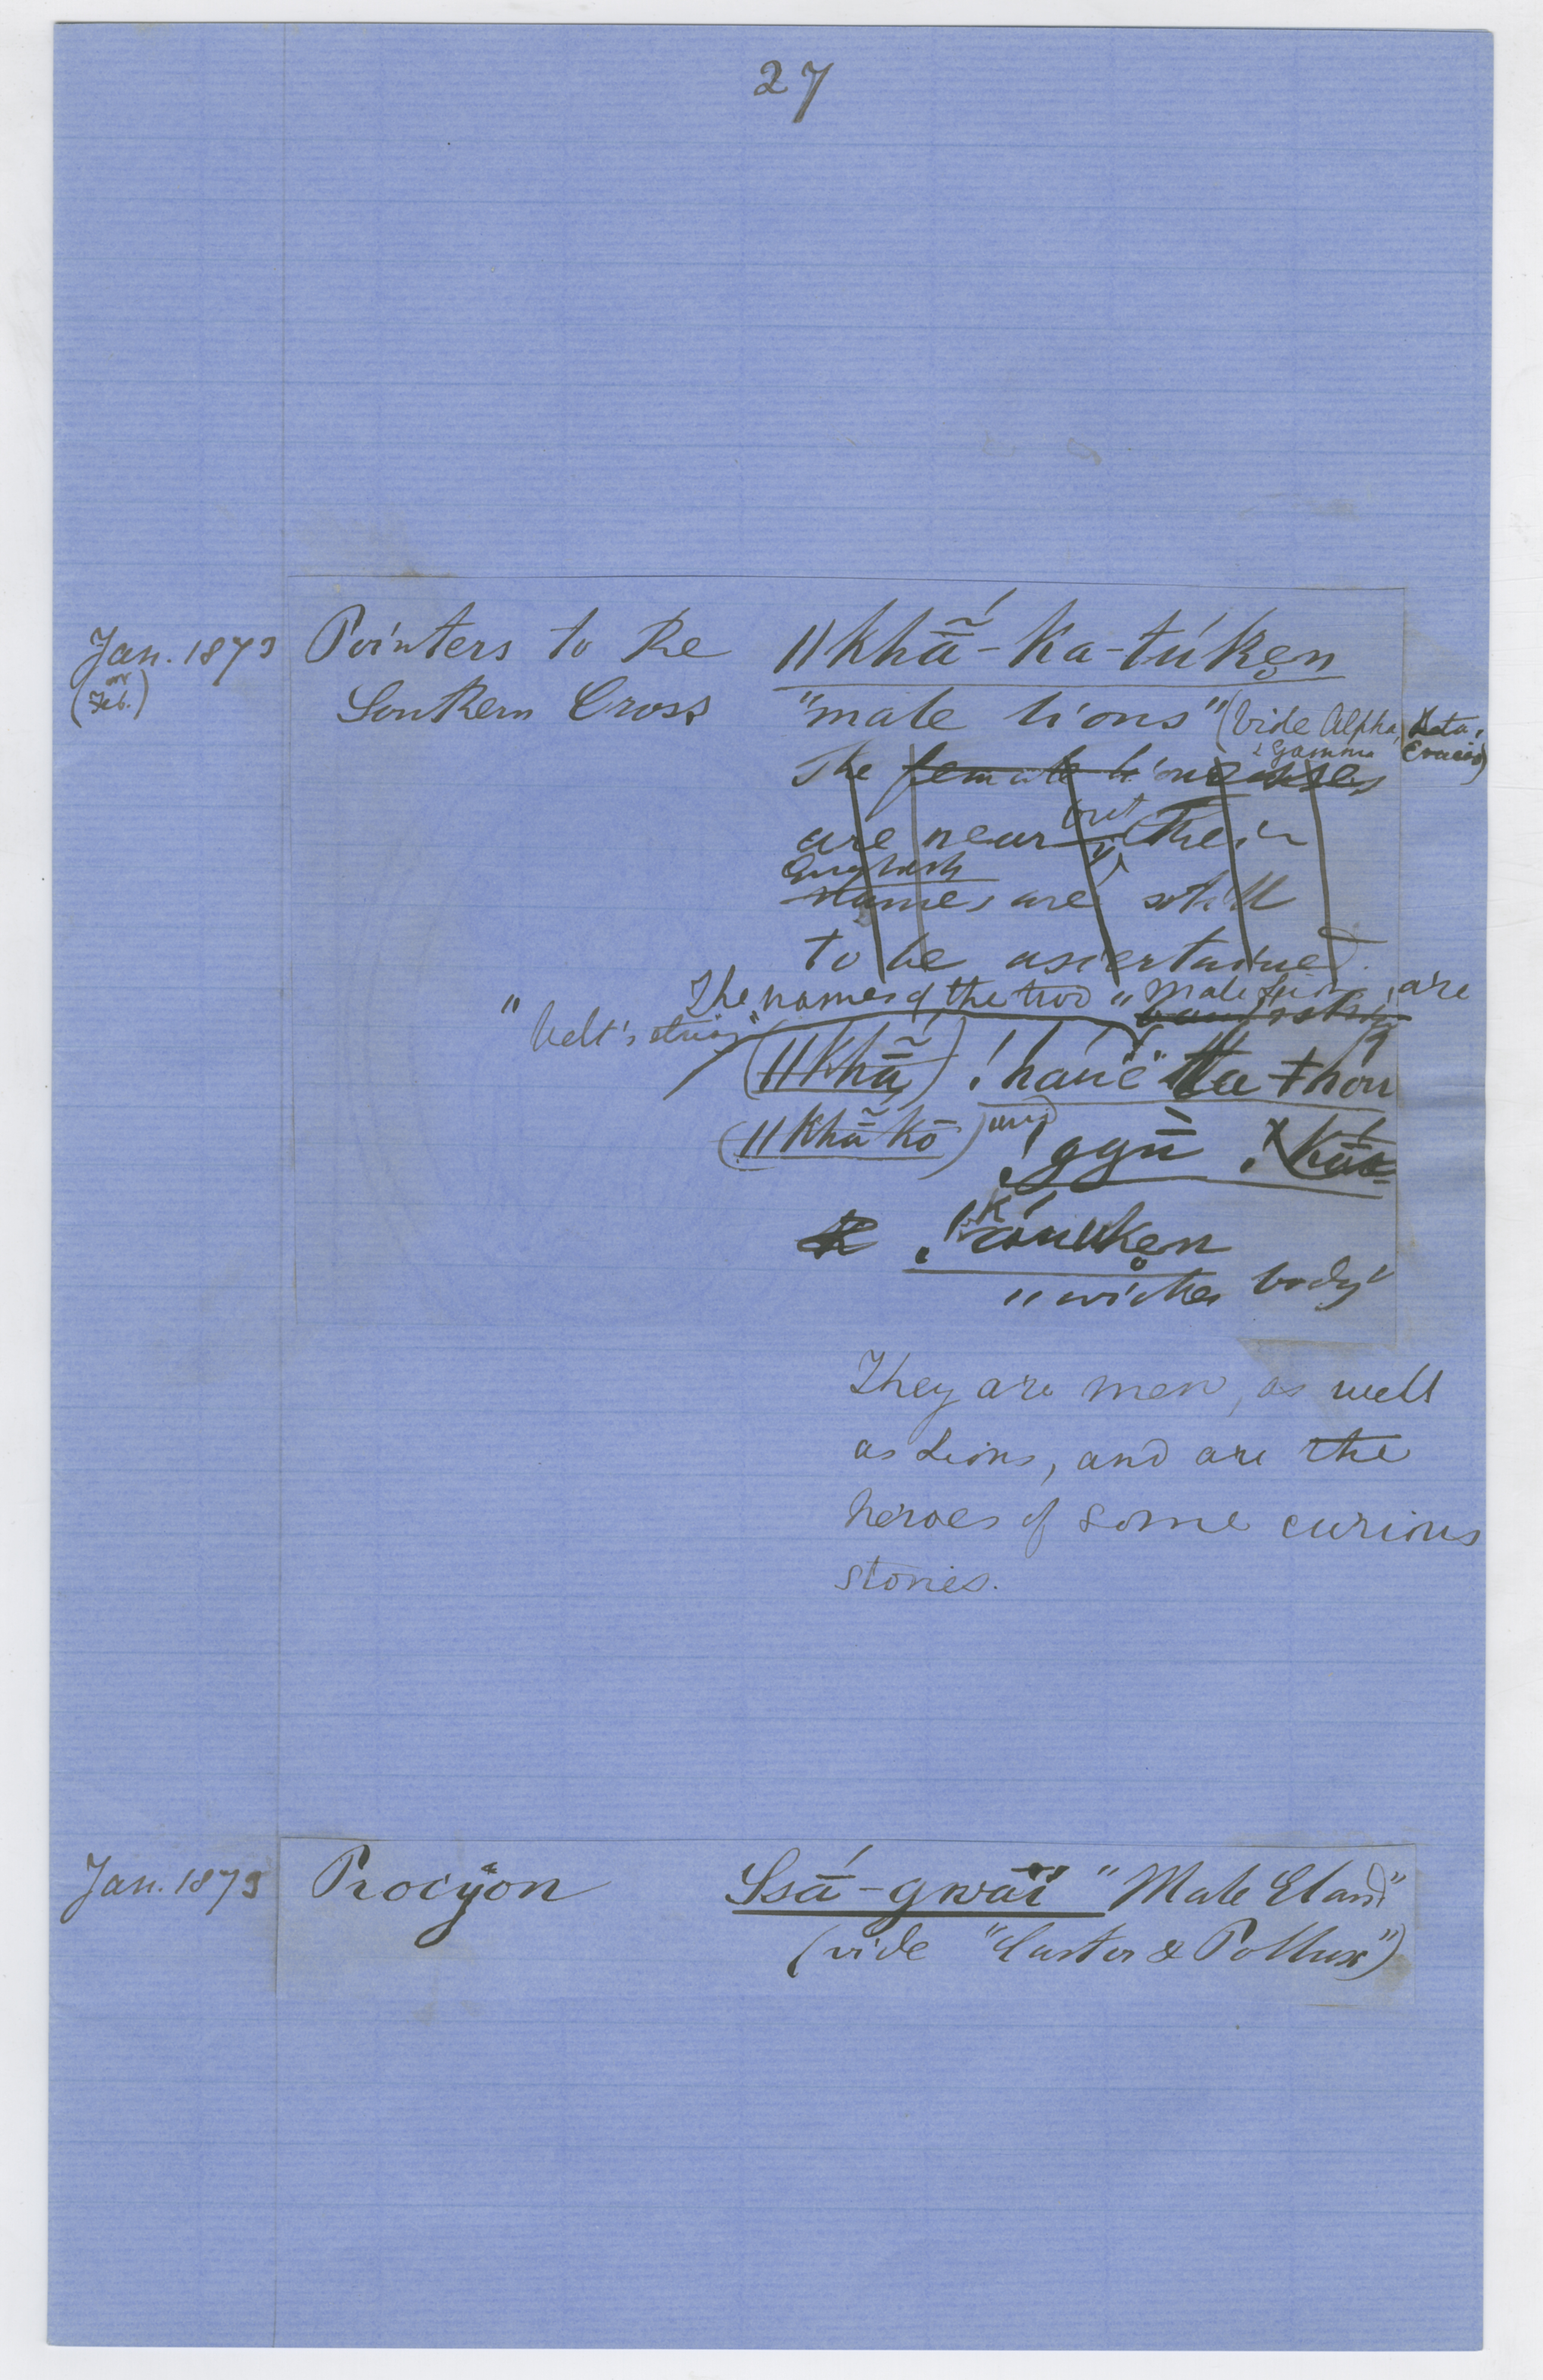 27
Jan. 1873 Pointers to the ǁkhã̄́-ka-túkẹn
(or Feb.) Southern Cross "male lions" (Vide Alpha, Beta,
& Gamma Crucis)
The female lionesses
are near but their
English
names are still
to be ascertained.
The names of the two "Male Lions" are
"belt's string"
(ǁkhã̄) !haue ta ǂhou
(ǁkhã̄ kō) and !gǖ
K
body"
They are men, as well
as Lions, and are the
heroes of some curious
stories.
Jan. 1873 Procyon Ssā́-gwaï "Male Eland"
(vide "Castor & Pollux")